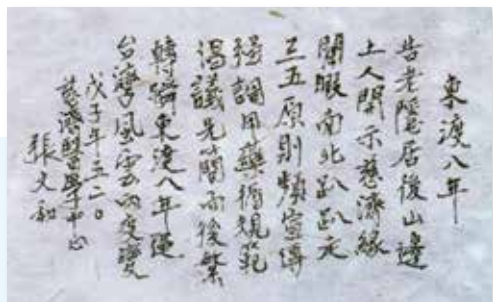 東渡八年
告老隱居後山邊
上人開示慈濟緣
閒暇南北趴趴走
三五原則頻宣傳
強調用藥循規範
倡議先簡而後繁
轉瞬東渡八年運
台灣風雲內度變
戊子年三二〇
慈濟醫學中心
張文和